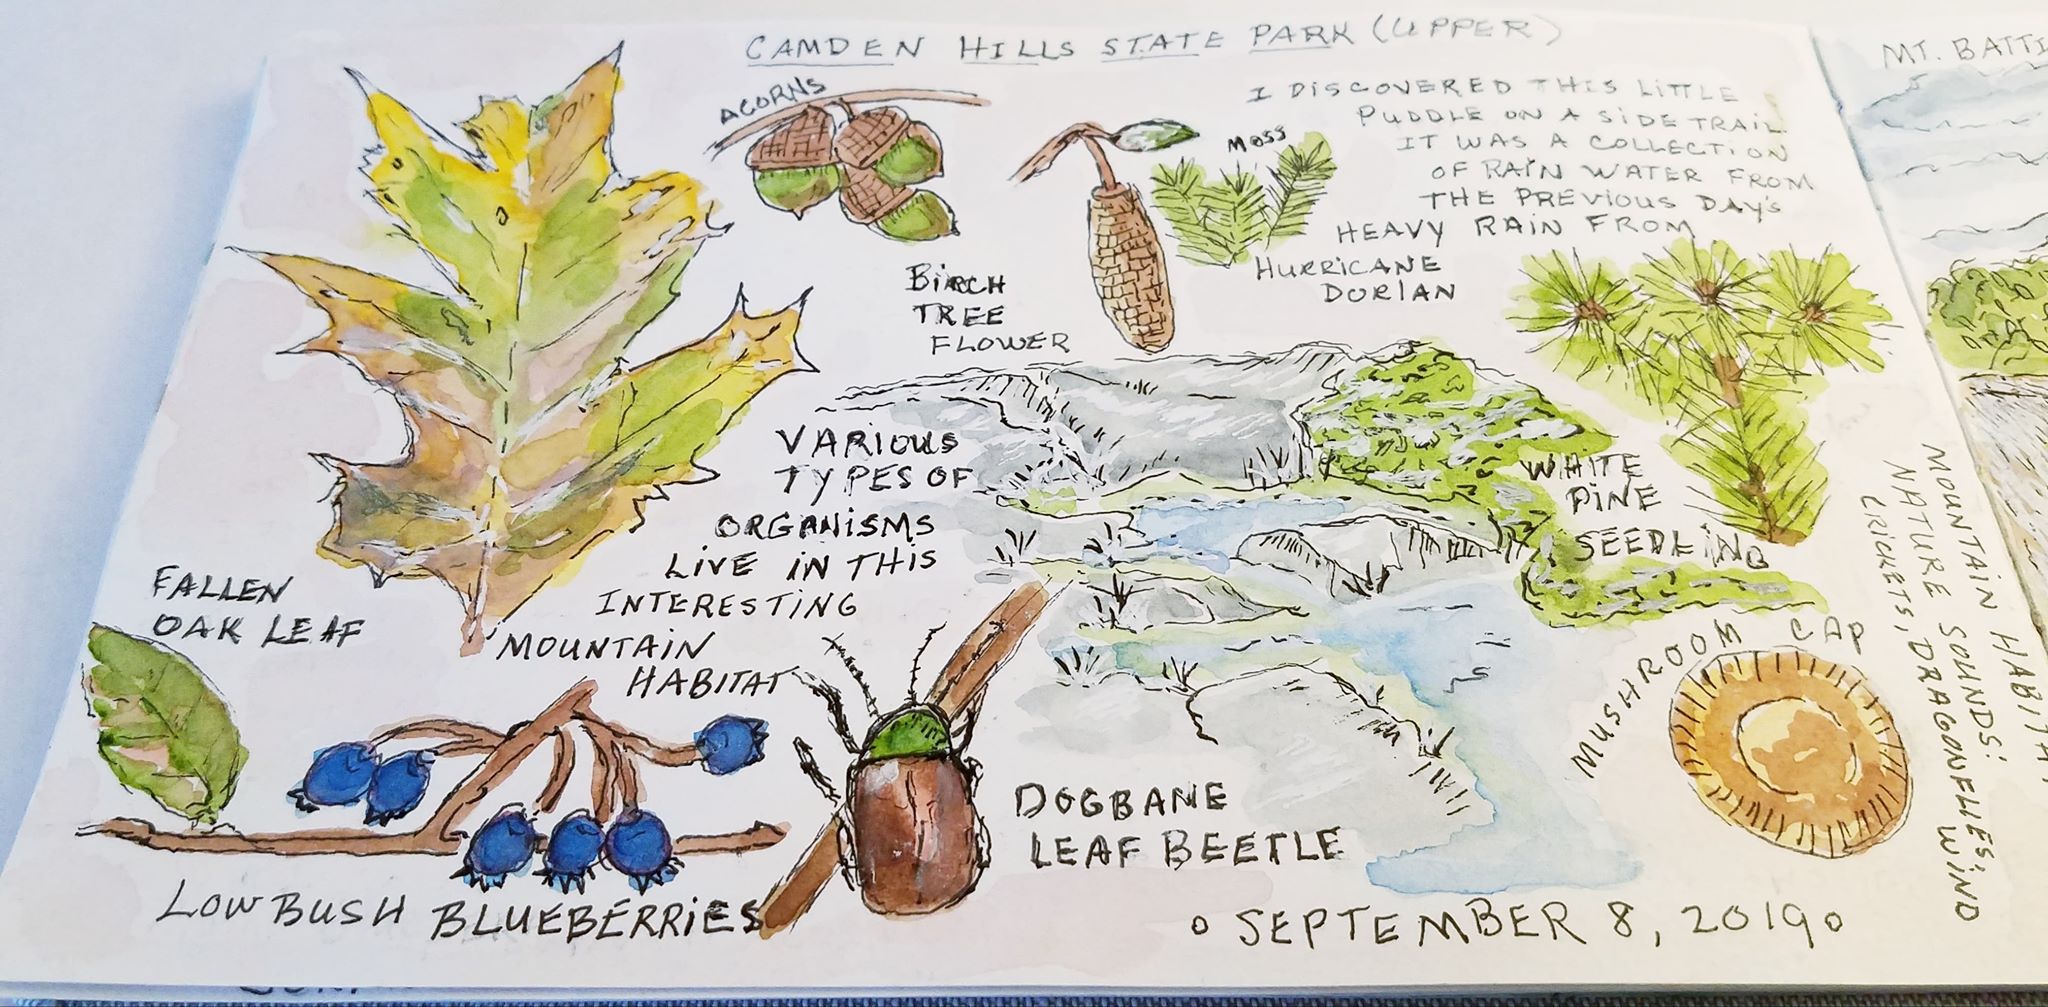 CAMDEN HILLS STATE PARK (UPPER)
ACORNS
I DISCOVERED THIS LITTLE
PUDDLE ON A SIDE TRAIL.
IT WAS A COLLECTION
OF RAIN WATER FROM
THE PREVIOUS DAY'S
HEAVY RAIN FROM
HURRICANE
DORIAN
MOSS
BIRCH
TREE
FLOWER
VARIOUS
TYPES OF
ORGANISMS
LIVE IN THIS
INTERESTING
MOUNTAIN
HABITAT
WHITE
PINE
SEEDLING
FALLEN
OAK LEAF
MUSHROOM CAP
DOGBANE
LEAF BEETLE
LOW BUSH BLUEBERRIES
SEPTEMBER 8, 2019
MT. BATTI
MOUNTAIN HABITAT,
NATURE SOUNDS:
CRICKETS, DRAGONFLIES, WIND